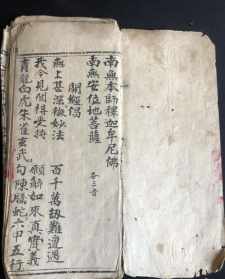 南無本師釋迦牟尼佛
南無安位地菩薩 各三音
開經偈
無上甚深微妙法 百千萬劫難遭遇
我今見聞得受持 願解如來真實義
青龍白虎朱雀玄武 勾陳騰蛇六甲五行